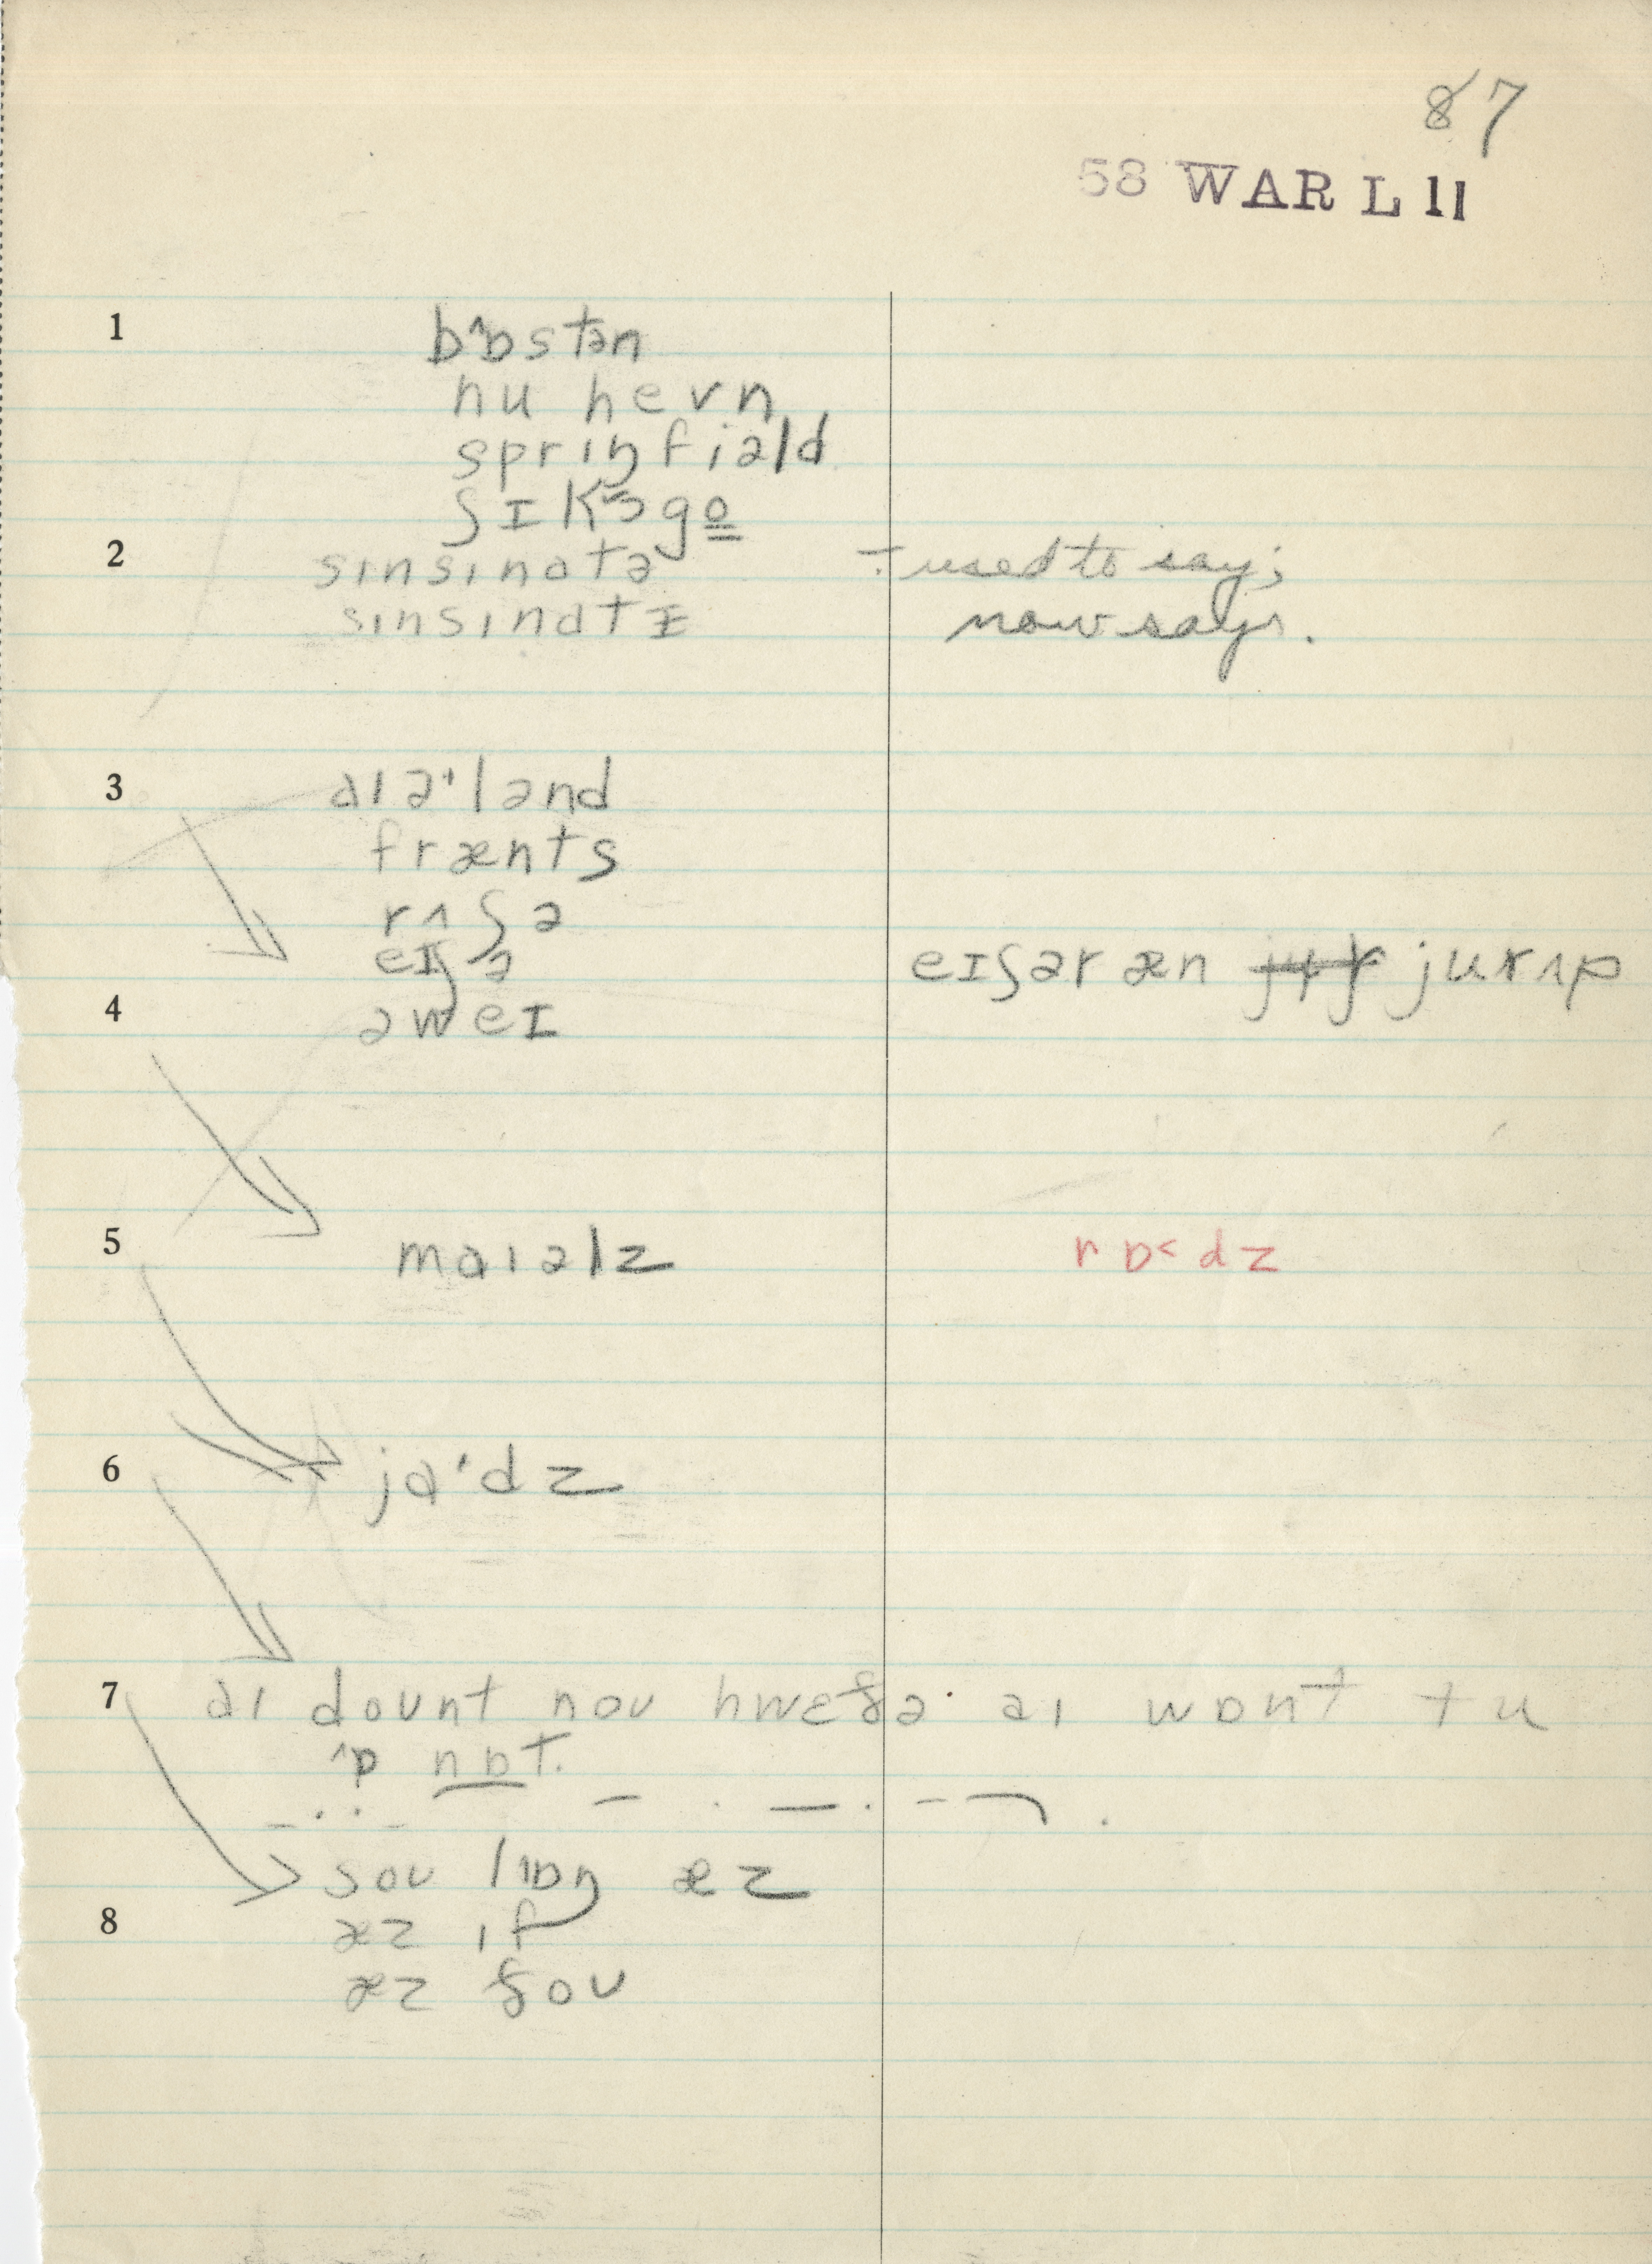 87
58 WAR L 11
1 bˆɒstən
nu hevn
sprɪŋfiəld
ʃɪkɔgo̳
2 sɪnsɪnatə ÷ used to say;
sɪnsɪnatɪ now says.
3 aɪəˈlənd
frænts
rʌʃə
eɪʃə eɪʃər æn jurʌp
4 əweɪ
5 maɪəlz rɒ˂dz
6 ja'dz
7 aɪ doʊnt noʊ hwɛðə aɪ wɒnt tu
ˆɒ nɒt.
soʊ lˆɒŋ æz
8 æz ɪf
æz ðoʊ